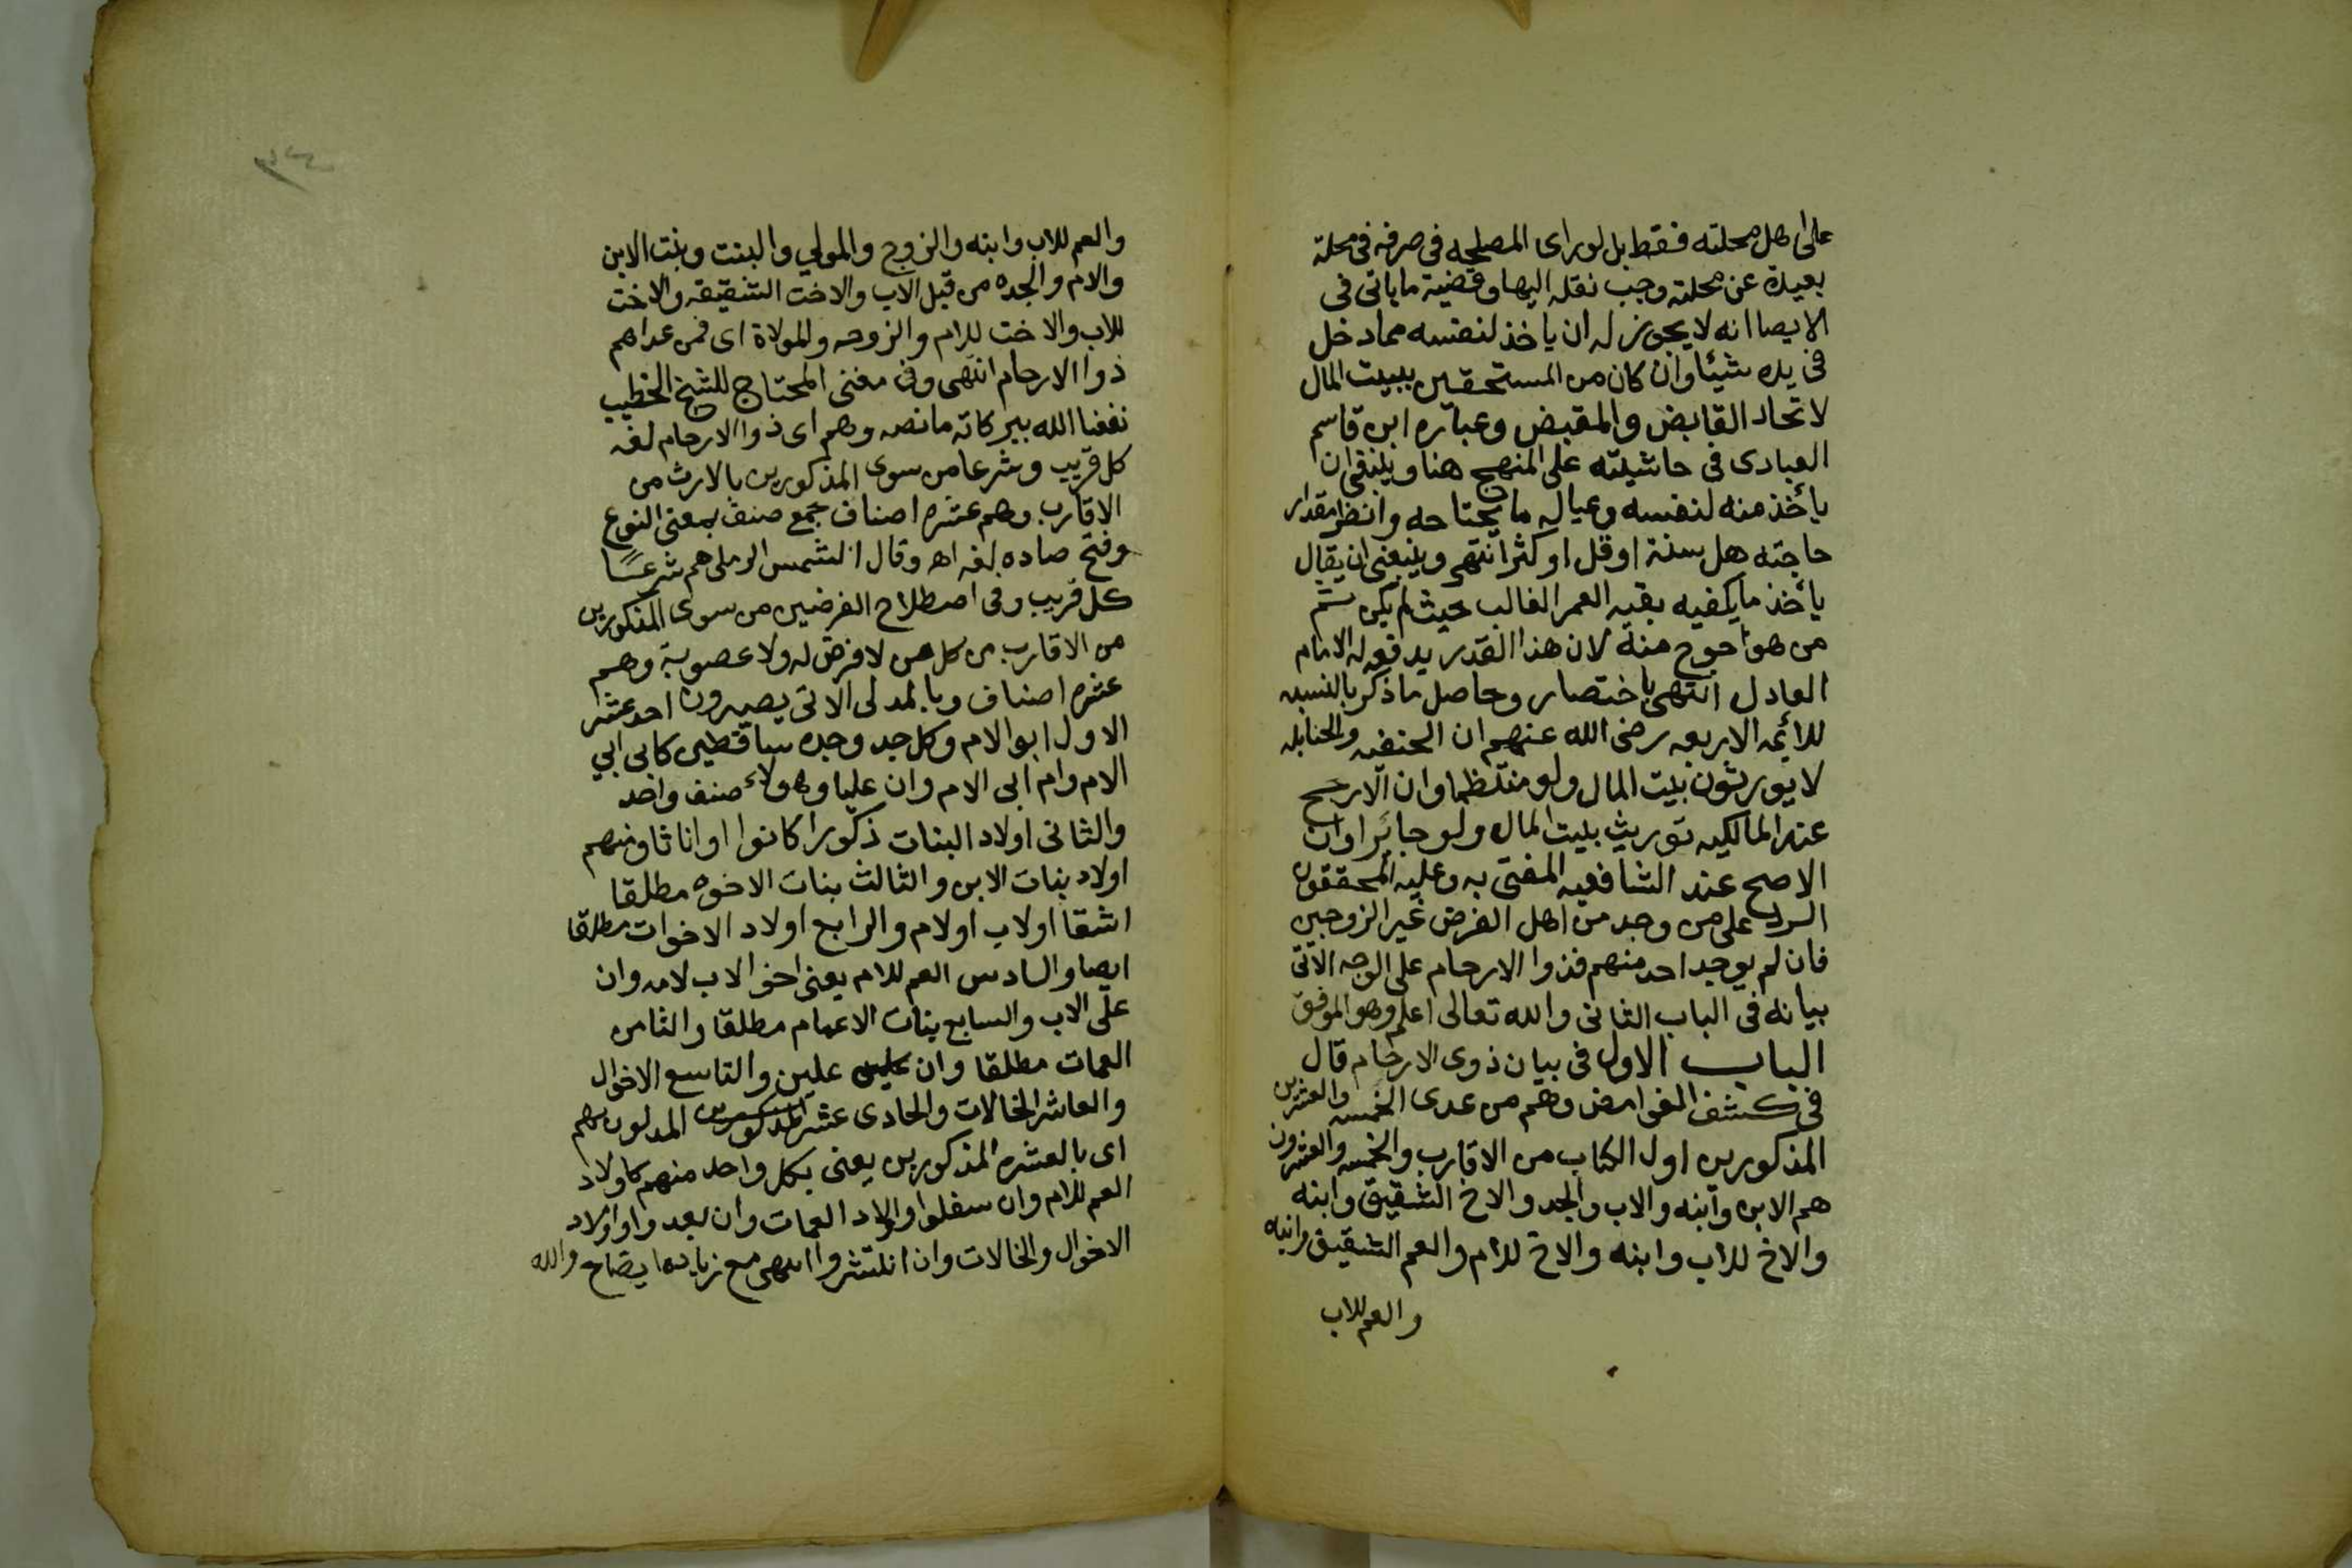 على اهل محلته فقط بل لو راى المصلحه فى صرفه فى محلة
بعيدة عن محلته وجب نقله اليها وقضية ما ياتى فى
الايصا انه لا يجوز له ان ياخذ لنفسه مما دخل
فى يده شيئا وان كان من المستحقين ببيت المال
لاتحاد القابض والمقبض وعبارة ابن قاسم
العبادى فى حاشيته على المنهج هنا وينبغى ان
يأخذ منه لنفسه وعياله ما يحتاجه وانظر مقدار
حاجته هل سنة او قل او كثر انتهى وينبغى ان يقال
يأخذ ما يكفيه بقيه العمر الغالب حيث لم يكن ثم
من هو احوج منه لان هذا القدر يدفعه له الامام
العادل انتهى باختصار وحاصل ما ذكر بالنسبه
للائمه الاربعه رضى الله عنهم ان الحنفيه والحنابله
لا يورثون بيت المال ولو منتظما وان الارجح
عند المالكيه توريث بيت المال ولو جائرا وان
الاصح عند الشافعيه المفتى به وعليه المحققون
الرد على من وجد من اهل الفرض غير الزوجين
فان لم يوجد احد منهم فذوا الارحام على الوجه الآتى
بيانه فى الباب الثانى والله تعالى اعلم وهو الموفق
الباب الاول فى بيان ذوى الارحام قال
فى كشف الغوامض وهم من عدى الخمسه والعشرين
المذكورين اول الكتاب من الاقارب والخمسه والعشرون
هم الابن وابنه والاب والجد والاخ الشقيق وابنه
والاخ للاب وابنه والاخ للام والعم الشقيق وابنه
والعم للاب
والعم للاب وابنه والزوج والمولي والبنت وبنت الابن
والام والجده من قبل الاب والاخت الشقيقه والاخت
للاب والاخت للام والزوجه والمولاة اى فمن عداهم
ذوا الارحام انتهى وفى مغنى المحتاج للشيخ الخطيب
نفعنا الله ببركاته ما نصه وهم اى ذوا الارحام لغه
كل قريب وشرعا من سوى المذكورين بالارث من
الاقارب وهم عشره اصناف جمع صنف بمعنى النوع
وفتح صاده لغه اه وقال الشمس الرملى هم شرعًا
كل قريب وفى اصطلاح الفرضيين من سوى المذكورين
من الاقارب من كل من لا فرض له ولا عصوبة وهم
عشره اصناف وبالمدلى الاتى يصيرون احد عشر
الاول ابو الام وكل جد وجده ساقطين كابى ابي
الام وام ابى الام وان عليا وهولاء صنف واحد
والثانى اولاد البنات ذكورا كانوا او اناثا ومنهم
اولاد بنات الابن والثالث بنات الاخوه مطلقا
اشقا او لاب او لام والرابع اولاد الاخوات مطلقا
ايضا والسادس العم للام يعنى اخو الاب لامه وان
على الاب والسابع بنات الاعمام مطلقا والثامن
العمات مطلقا وان علين والتاسع الاخوال
والعاشر الخالات والحادى عشر المدلون بهم
اى بالعشره المذكورين يعنى بكل واحد منهم كاولاد
العم للام وان سفلوا واولاد العمات وان بعدوا واولاد
الاخوال والخالات وان انتشروا انتهى مع زياده ايضاح والله